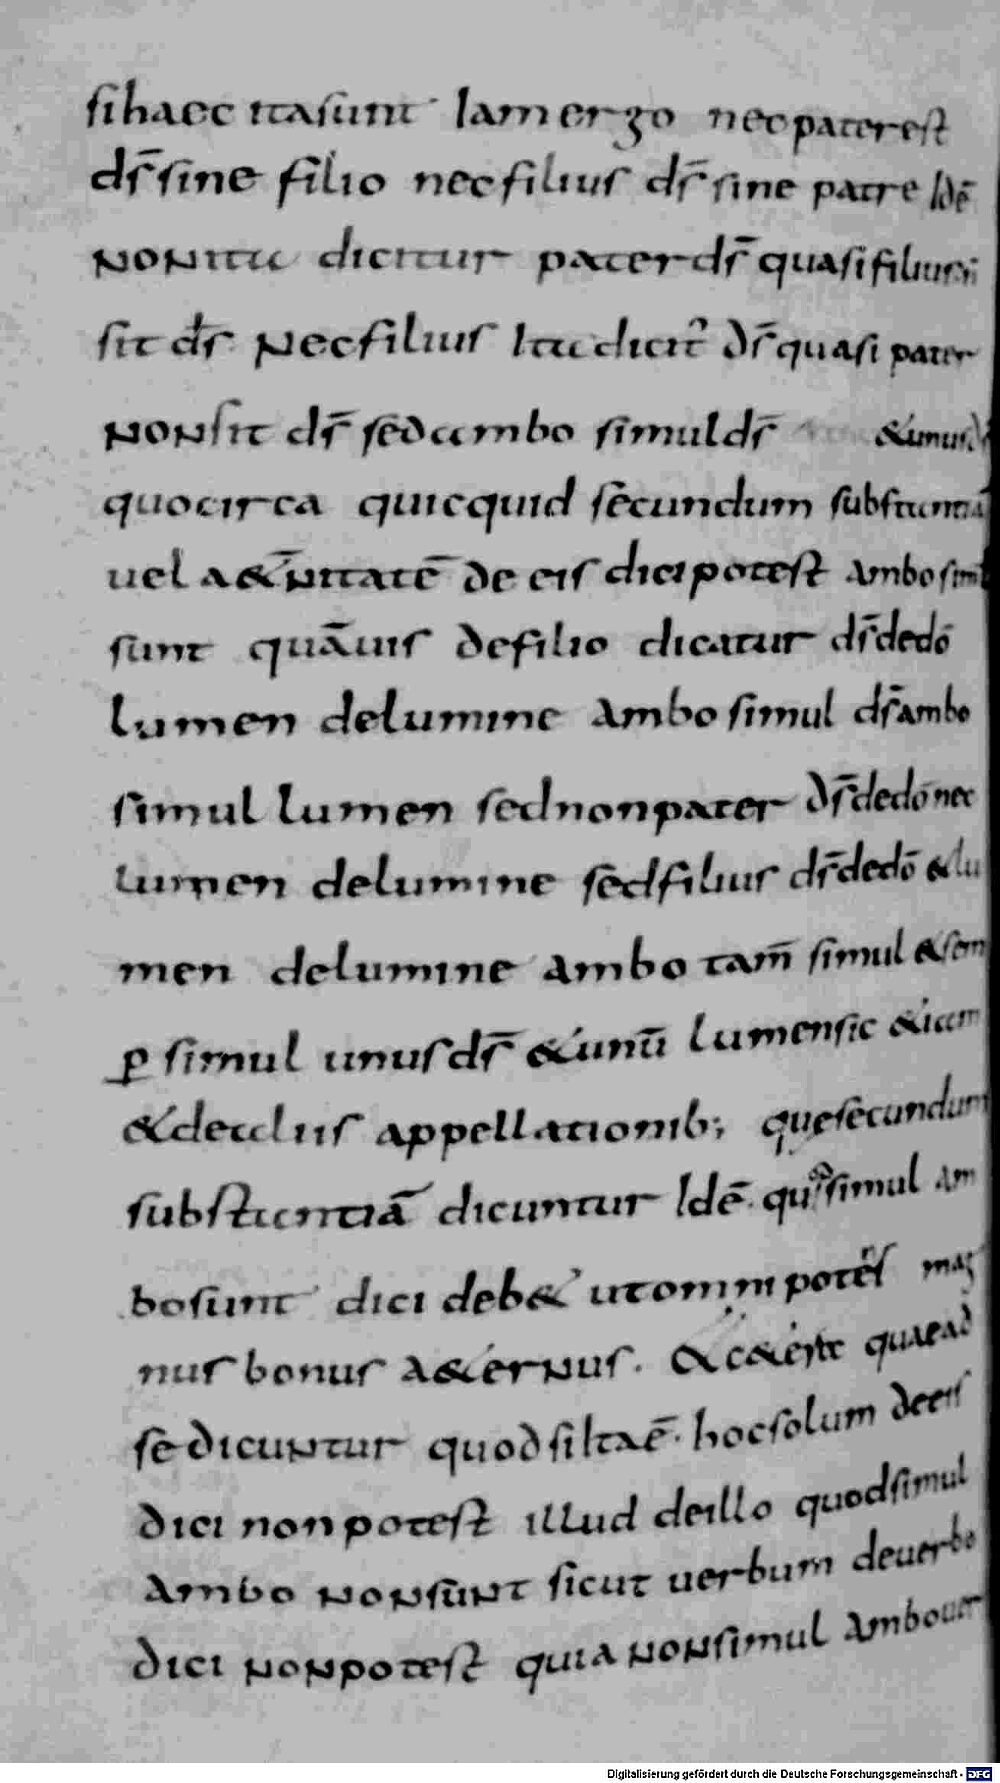 si haec ita sunt Iam ergo nec pater est
dr̄ sine filio nec filius dr̄ sine patre Idē
non ita dicitur pater dr̄ quasi filius ñ
sit dr̄ Nec filius Ita dicit᷑ dr̄ quasi pater
non sit dr̄ sed ambo simul dr̄ & unus
quocirca quicquid secundum substantiā
uel a&̄nitatē de eis dici potest Ambo simul
sunt quāuis de filio dicatur dr̄ de dō
lumen de lumine Ambo simul dr̄ ambo
simul lumen sed non pater dr̄ de dō nec
lumen de lumine sed filius dr̄ de dō & lu
men de lumine Ambo tam̄ simul & sem
ꝑ simul unus dr̄ & unū lumen sic & iam
& de aliis appellationib; quę secundum
substantiā dicuntur Idē. simul am
bo sunt dici deb& ut omnipotēs mag
nus bonus a&ernus. & c&ere quae ad
se dicuntur quod si Ita ē. hoc solum de eis
dici non potest illud de illo quod simul
Ambo non sunt sicut uerbum de uerbo
dici non potest quia non simul Ambo uer